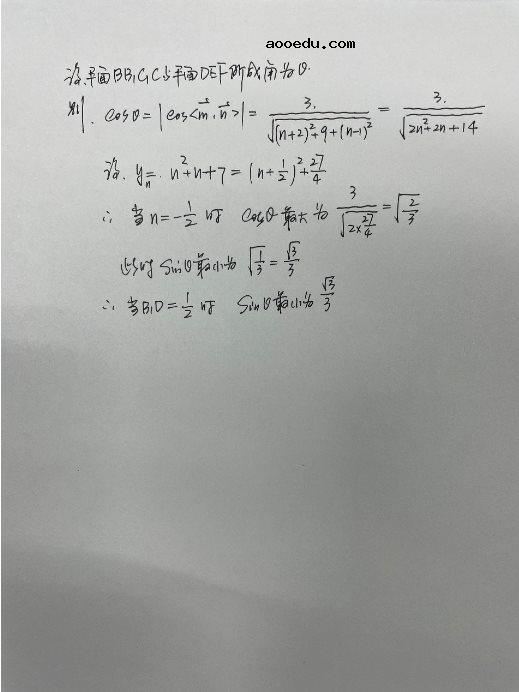 aooedu.com
设平面BB₁C₁C与平面DEF所成角为θ.
则. cosθ = |cos<m⃗, n⃗>| = 3./√((n+2)²+9+(n-1)²) = 3./√(2n²+2n+14)
设. y = n²+n+7 = (n+1/2)²+27/4
∴ 当n=-1/2时 cosθ最大为 3/√(2×27/4) = √(2/3)
此时 sinθ最小为 √(1/3) = √3/3
∴ 当B₁D=1/2时 sinθ最小为 √3/3